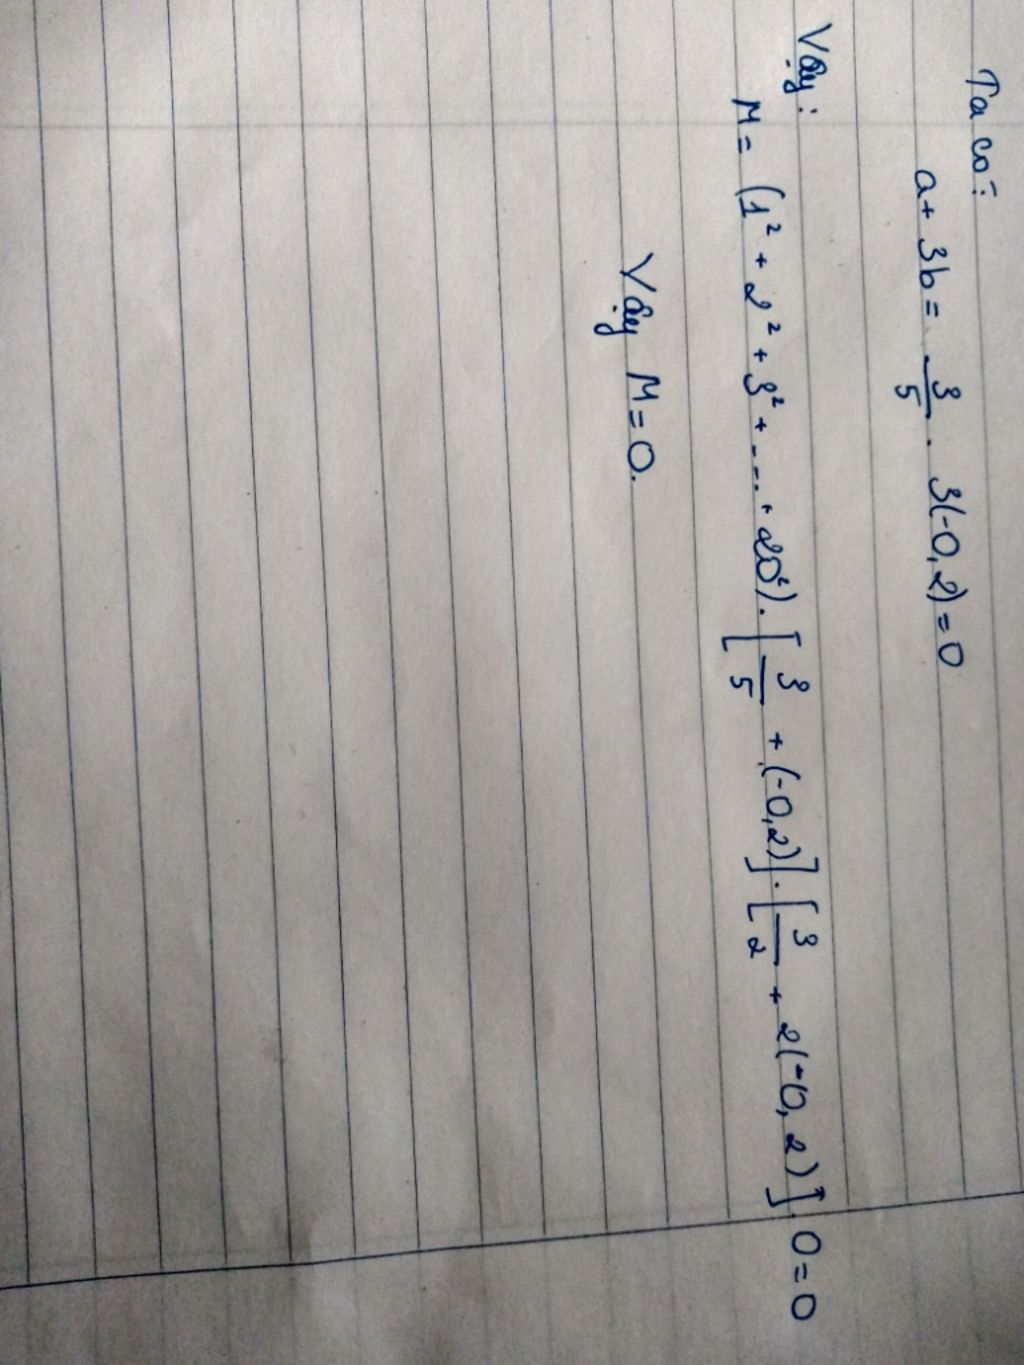 Ta có:
a + 3b = 3/5 . 3(-0,2) = 0
Vậy:
M = (1² + 2² + 3² + .... + 20²) . [3/5 + (-0,2)] . [3/2 + 2(-0,2)] . 0 = 0
Vậy M = 0.